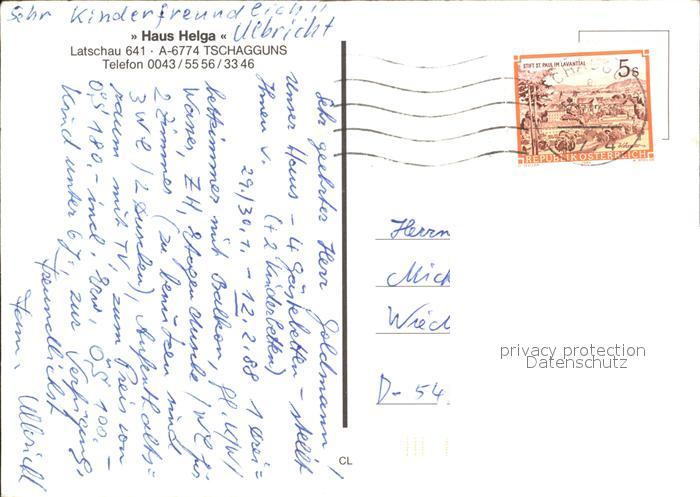 Sehr kinderfreundlich!!
Ulbricht
» Haus Helga «
Latschau 641 · A-6774 TSCHAGGUNS
Telefon 0043/5556/3346
Sehr geehrter Herr Goldmann!
Unser Haus - 4 Gästebetten - stellt
Ihnen v. (+ 2 Kinderbetten)
29./30.1. - 12.2.88 1 Drei=
bettzimmer mit Balkon, fl. K/W/
Wasser, ZH, Etagendusche/WC für
2 Zimmer (zu benützen sind
3 WC/2 Duschen), Aufenthalts=
raum mit TV, zum Preis von
ÖS 180,- incl., Erw., ÖS 100,-
Kind unter 6 J., zur Verfügung,
Freundlichst
Fam. Ulbricht
STIFT ST. PAUL IM LAVANTTAL
5s
REPUBLIK ÖSTERREICH
Herrn
Mich
Wied
D-54
privacy protection
Datenschutz
CL